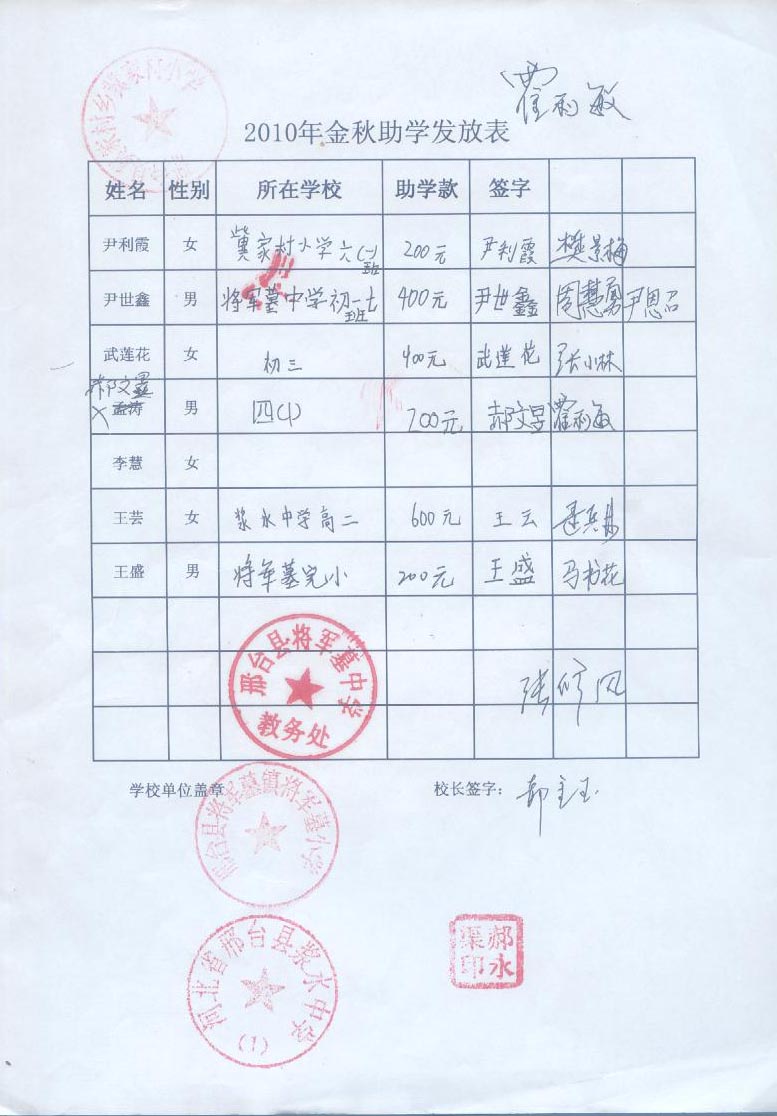 霍利敏
2010年金秋助学发放表
姓名 性别 所在学校 助学款 签字
尹利霞 女 冀家村小学六(一)班 200元 尹利霞 樊景梅
尹世鑫 男 将军墓中学初一七班 400元 尹世鑫 周慧勇 尹思召
武莲花 女 初三 400元 武莲花 张小林
郝文
孟涛 男 四(1) 200元 郝文 霍利敏
李慧 女
王芸 女 浆水中学高二 600元 王云
王盛 男 将军墓完小 200元 王盛 马书花
邢台县将军墓中学
教务处
学校单位盖章 校长签字：
邢台县将军墓镇将军墓小学
河北省邢台县浆水中学
(1)
郝永渠印